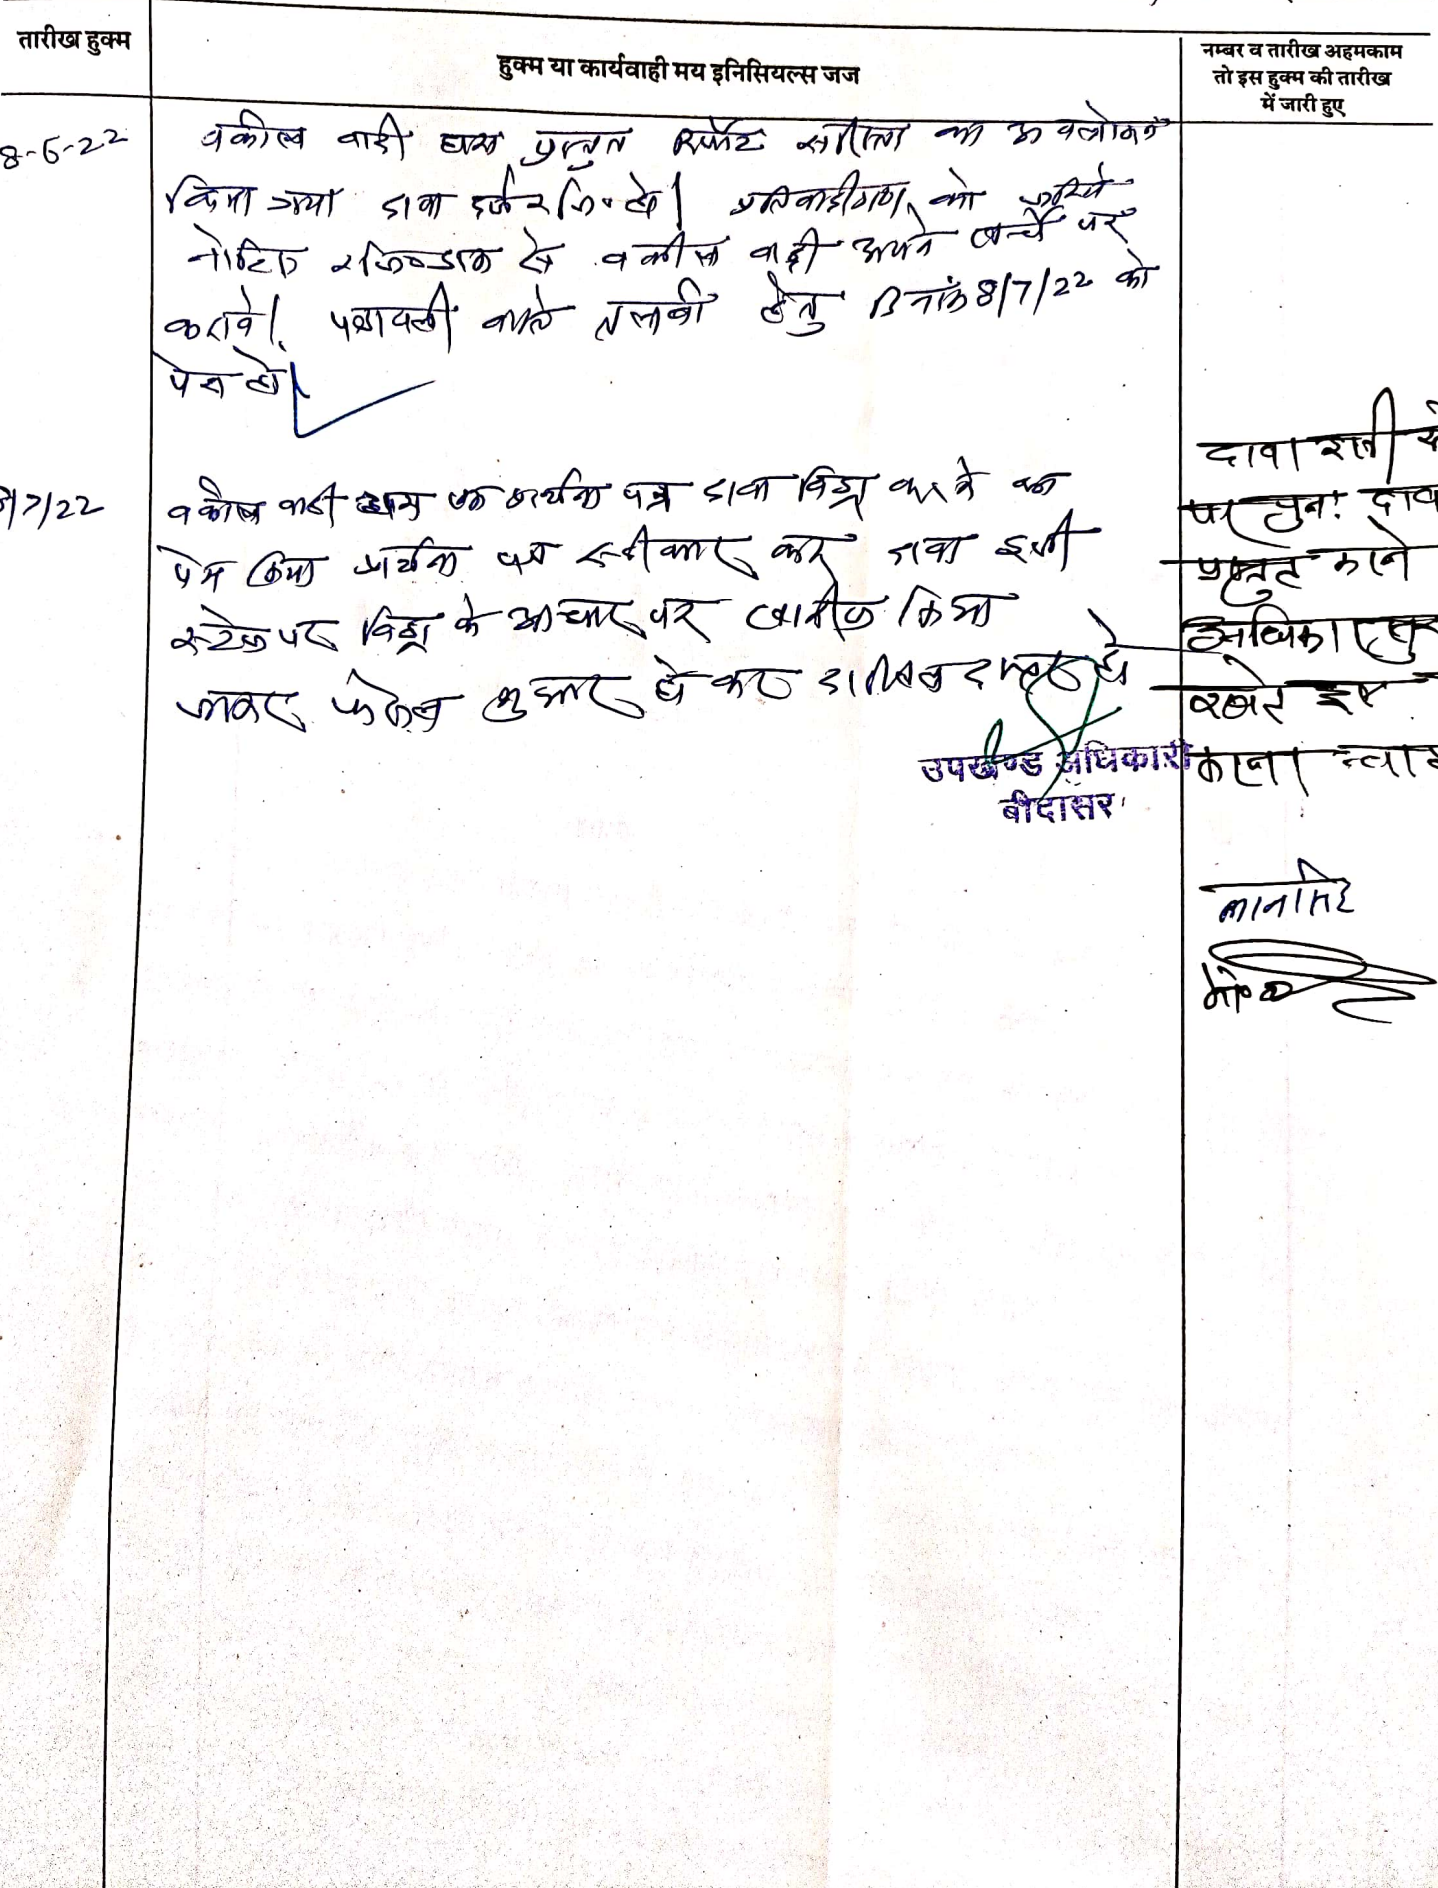 तारीख हुक्म
हुक्म या कार्यवाही मय इनिसियल्स जज
नम्बर व तारीख अहमकाम
तो इस हुक्म की तारीख
में जारी हुए
8-6-22
वकील वादी द्वारा प्रस्तुत रिपोर्ट सरिस्ता का अवलोकन
किया गया दावा दर्ज रजि० हो। प्रतिवादीगण को जरिये
नोटिस रजि० डाक से वकील वादी अपने खर्चे पर
करावे। पत्रावली वास्ते तलबी हेतु दिनांक 8/7/22 को
पेश हो।
/7/22
वकील वादी द्वारा एक प्रार्थना पत्र दावा विड्रा करने का
पेश किया प्रार्थना पत्र स्वीकार कर दावा इसी
स्टेज पर विड्रा के आधार पर खारीज किया
जाकर फैसल शुमार हो कर दाखिल दफ्तर हो
उपखण्ड अधिकारी
बीदासर
दावा
पर पुनः दाव
प्रस्तुत करने
रखते हुए
करना चाह